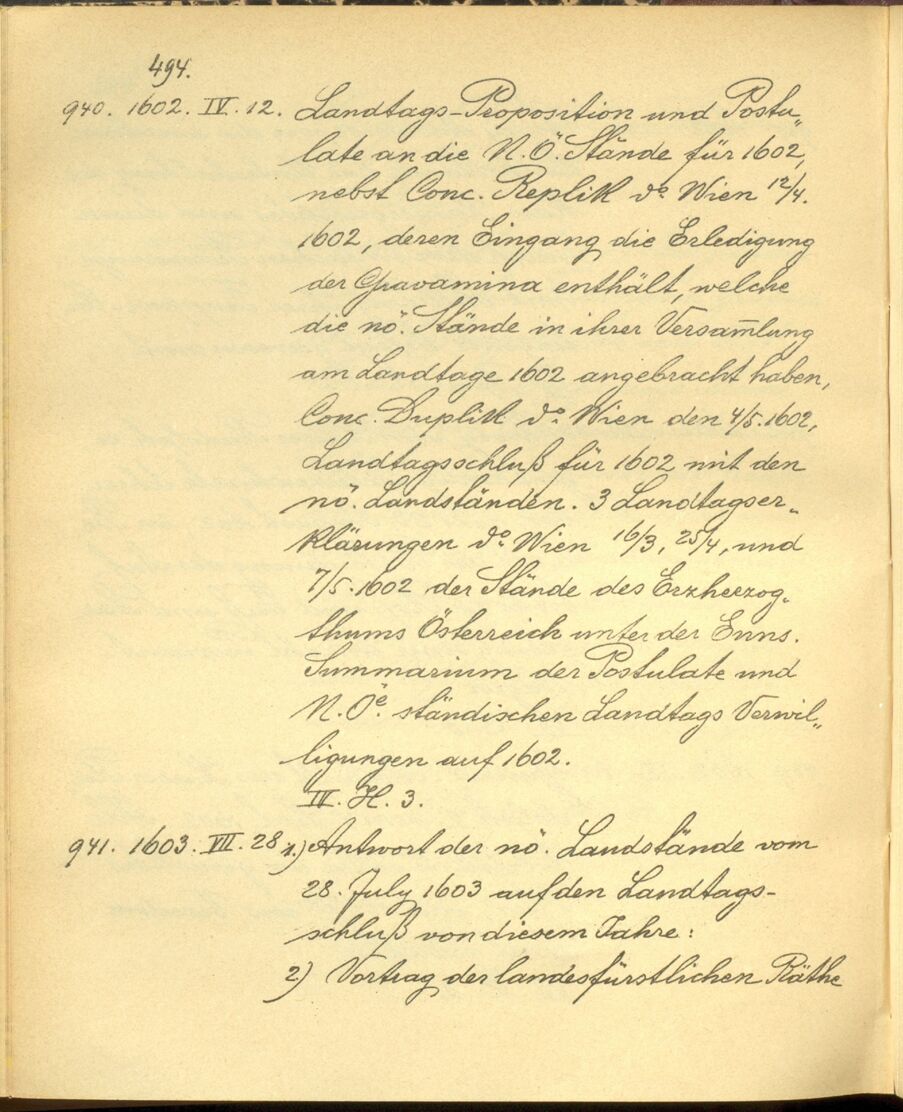 494.
940. 1602. IV. 12. Landtags-Proposition und Postu„
late an die N.Ö. Stände für 1602,
nebst Conc. Replik do. Wien 12/4.
1602, deren Eingang die Erledigung
der Gravamina enthält, welche
die nö. Stände in ihrer Versam̅lung
am Landtage 1602 angebracht haben,
Conc. Duplik do. Wien den 4/5. 1602,
Landtagsschluß für 1602 mit den
nö. Landständen. 3 Landtagser„
klärungen do. Wien 16/3, 25/4, und
7/5. 1602 der Stände des Erzherzog„
thums Österreich unter der Enns.
Summarium der Postulate und
N.Öe. ständischen Landtags Verwil„
ligungen auf 1602.
IV. H. 3.
941. 1603. VII. 28 1.) Antwort der nö. Landstände vom
28. July 1603 auf den Landtags-
schluß von diesem Jahre:
2) Vortrag der landesfürstlichen Räthe